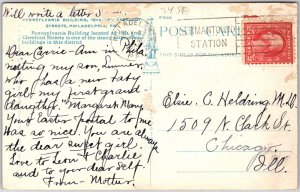 Will write a letter
PENNSYLVANIA BUILDING, CHESTNUT
STREETS, PHILADELPHIA, PA.
Pennsylvania Building located at 15th and
Chestnut Streets is one of the many
buildings in this district
POST CARD
STATION
Dear Carrie - Am in Phila
visiting my son,
who has a new baby
girl - my first grand
daughter. "Margaret Mary"
Your Easter postal to me
was so nice. You are always
the dear sweet girl.
Love to Leon & Charlie
and to your dear self.
From - Mother.
Elsie C. Heldring M.D.
1509 N. Clark St.
Chicago,
Ill.